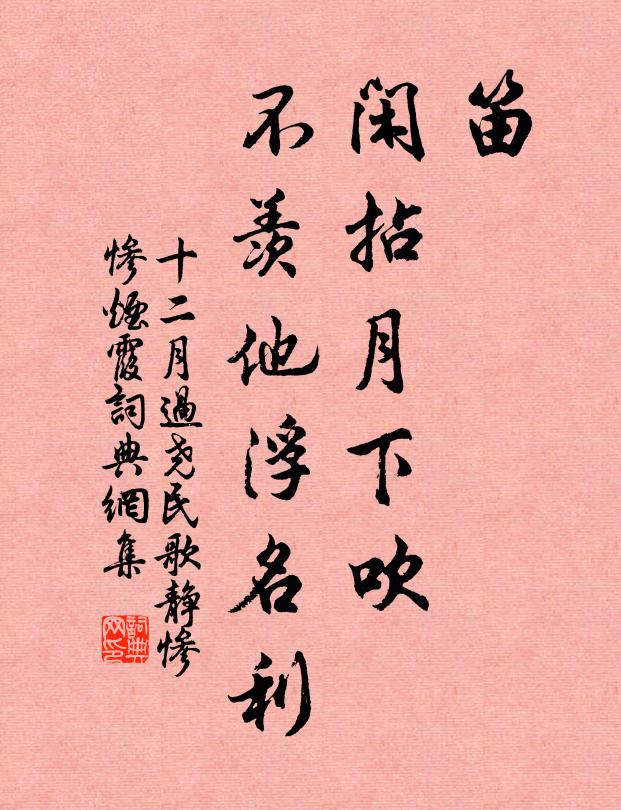 笛
闲拈月下吹
不羡他浮名利
十二月過尧民歌静惨
惨煙霞詞典網集
詞典
网印